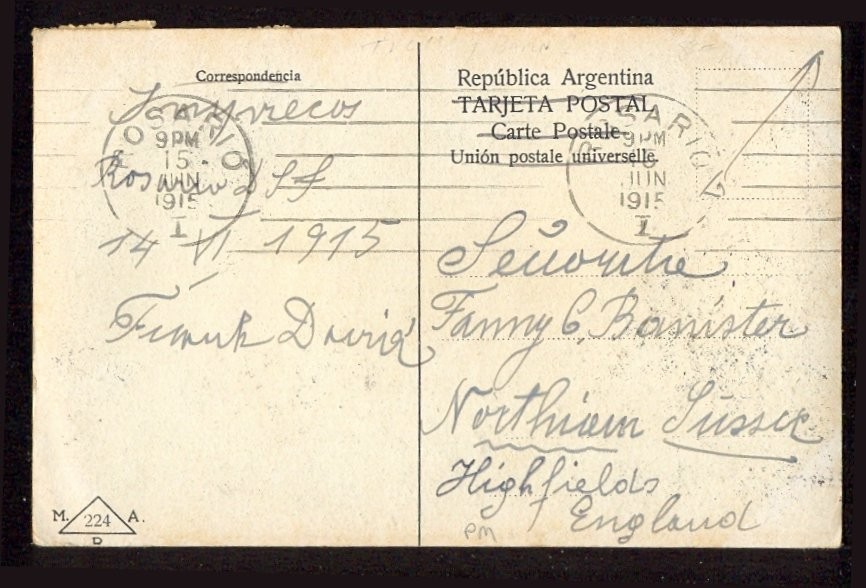 Correspondencia
ROSARIO
9 PM
15
JUN
1915
I
Rosario
14 VI 1915
Frank David
República Argentina
TARJETA POSTAL
Carte Postale
Unión postale universelle.
ROSARIO
9 PM
15
JUN
1915
I
Señorita
Fanny C. Banister
Northiam Sussex
Highfields
England
PM
M. 224 A.